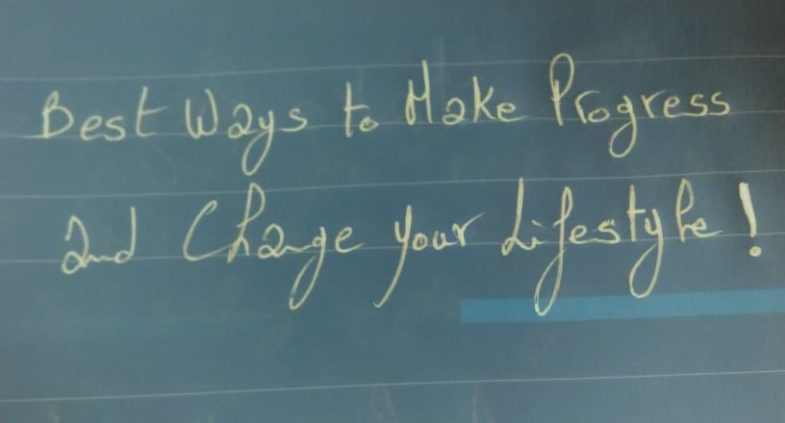 Best Ways to Make Progress
and Change your Lifestyle!